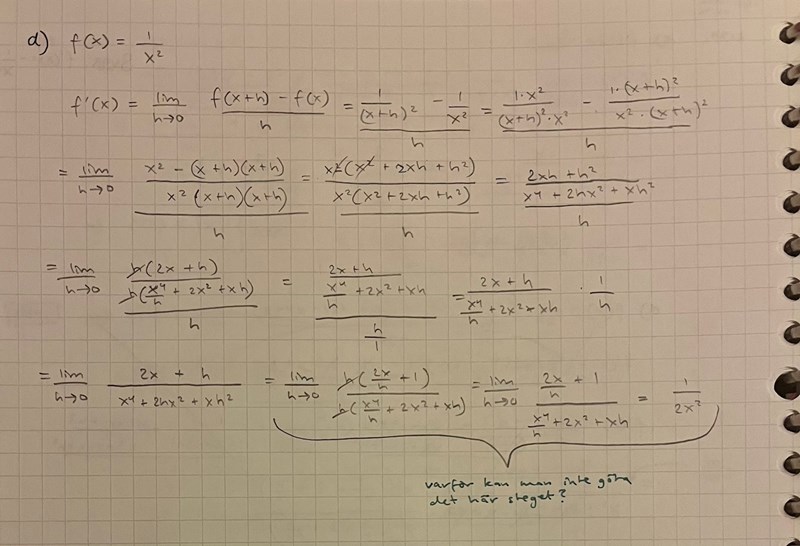 d) f(x) = 1/x²
f'(x) = lim h→0 (f(x+h) - f(x))/h = (1/(x+h)² - 1/x²)/h = ((1·x²)/((x+h)²·x²) - (1·(x+h)²)/(x²·(x+h)²))/h
= lim h→0 ((x² - (x+h)(x+h))/(x²(x+h)(x+h)))/h = ((x²(x² + 2xh + h²))/(x²(x² + 2xh + h²)))/h = ((2xh + h²)/(x⁴ + 2hx² + xh²))/h
= lim h→0 ((h(2x + h))/(h(x⁴/h + 2x² + xh)))/h = ((2x + h)/(x⁴/h + 2x² + xh))/(h/1) = (2x + h)/(x⁴/h + 2x² + xh) · 1/h
= lim h→0 (2x + h)/(x⁴ + 2hx² + xh²) = lim h→0 (h(2x/h + 1))/(h(x⁴/h + 2x² + xh)) = lim h→0 (2x/h + 1)/(x⁴/h + 2x² + xh) = 1/(2x²)
varför kan man inte göra
det här steget?